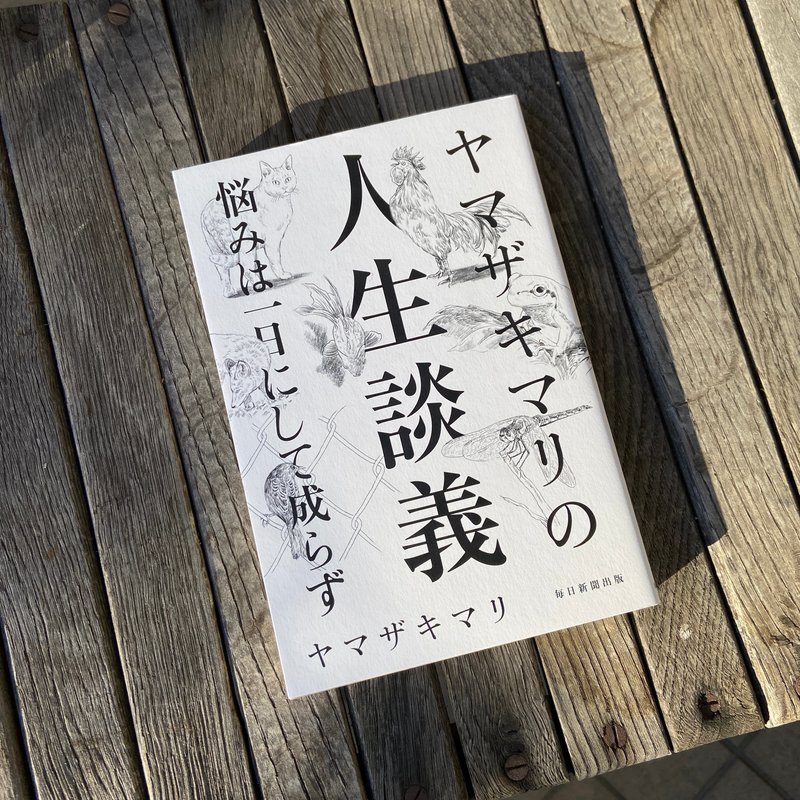 ヤマザキマリの
人生談義
悩みは一日にして成らず
ヤマザキマリ
毎日新聞出版